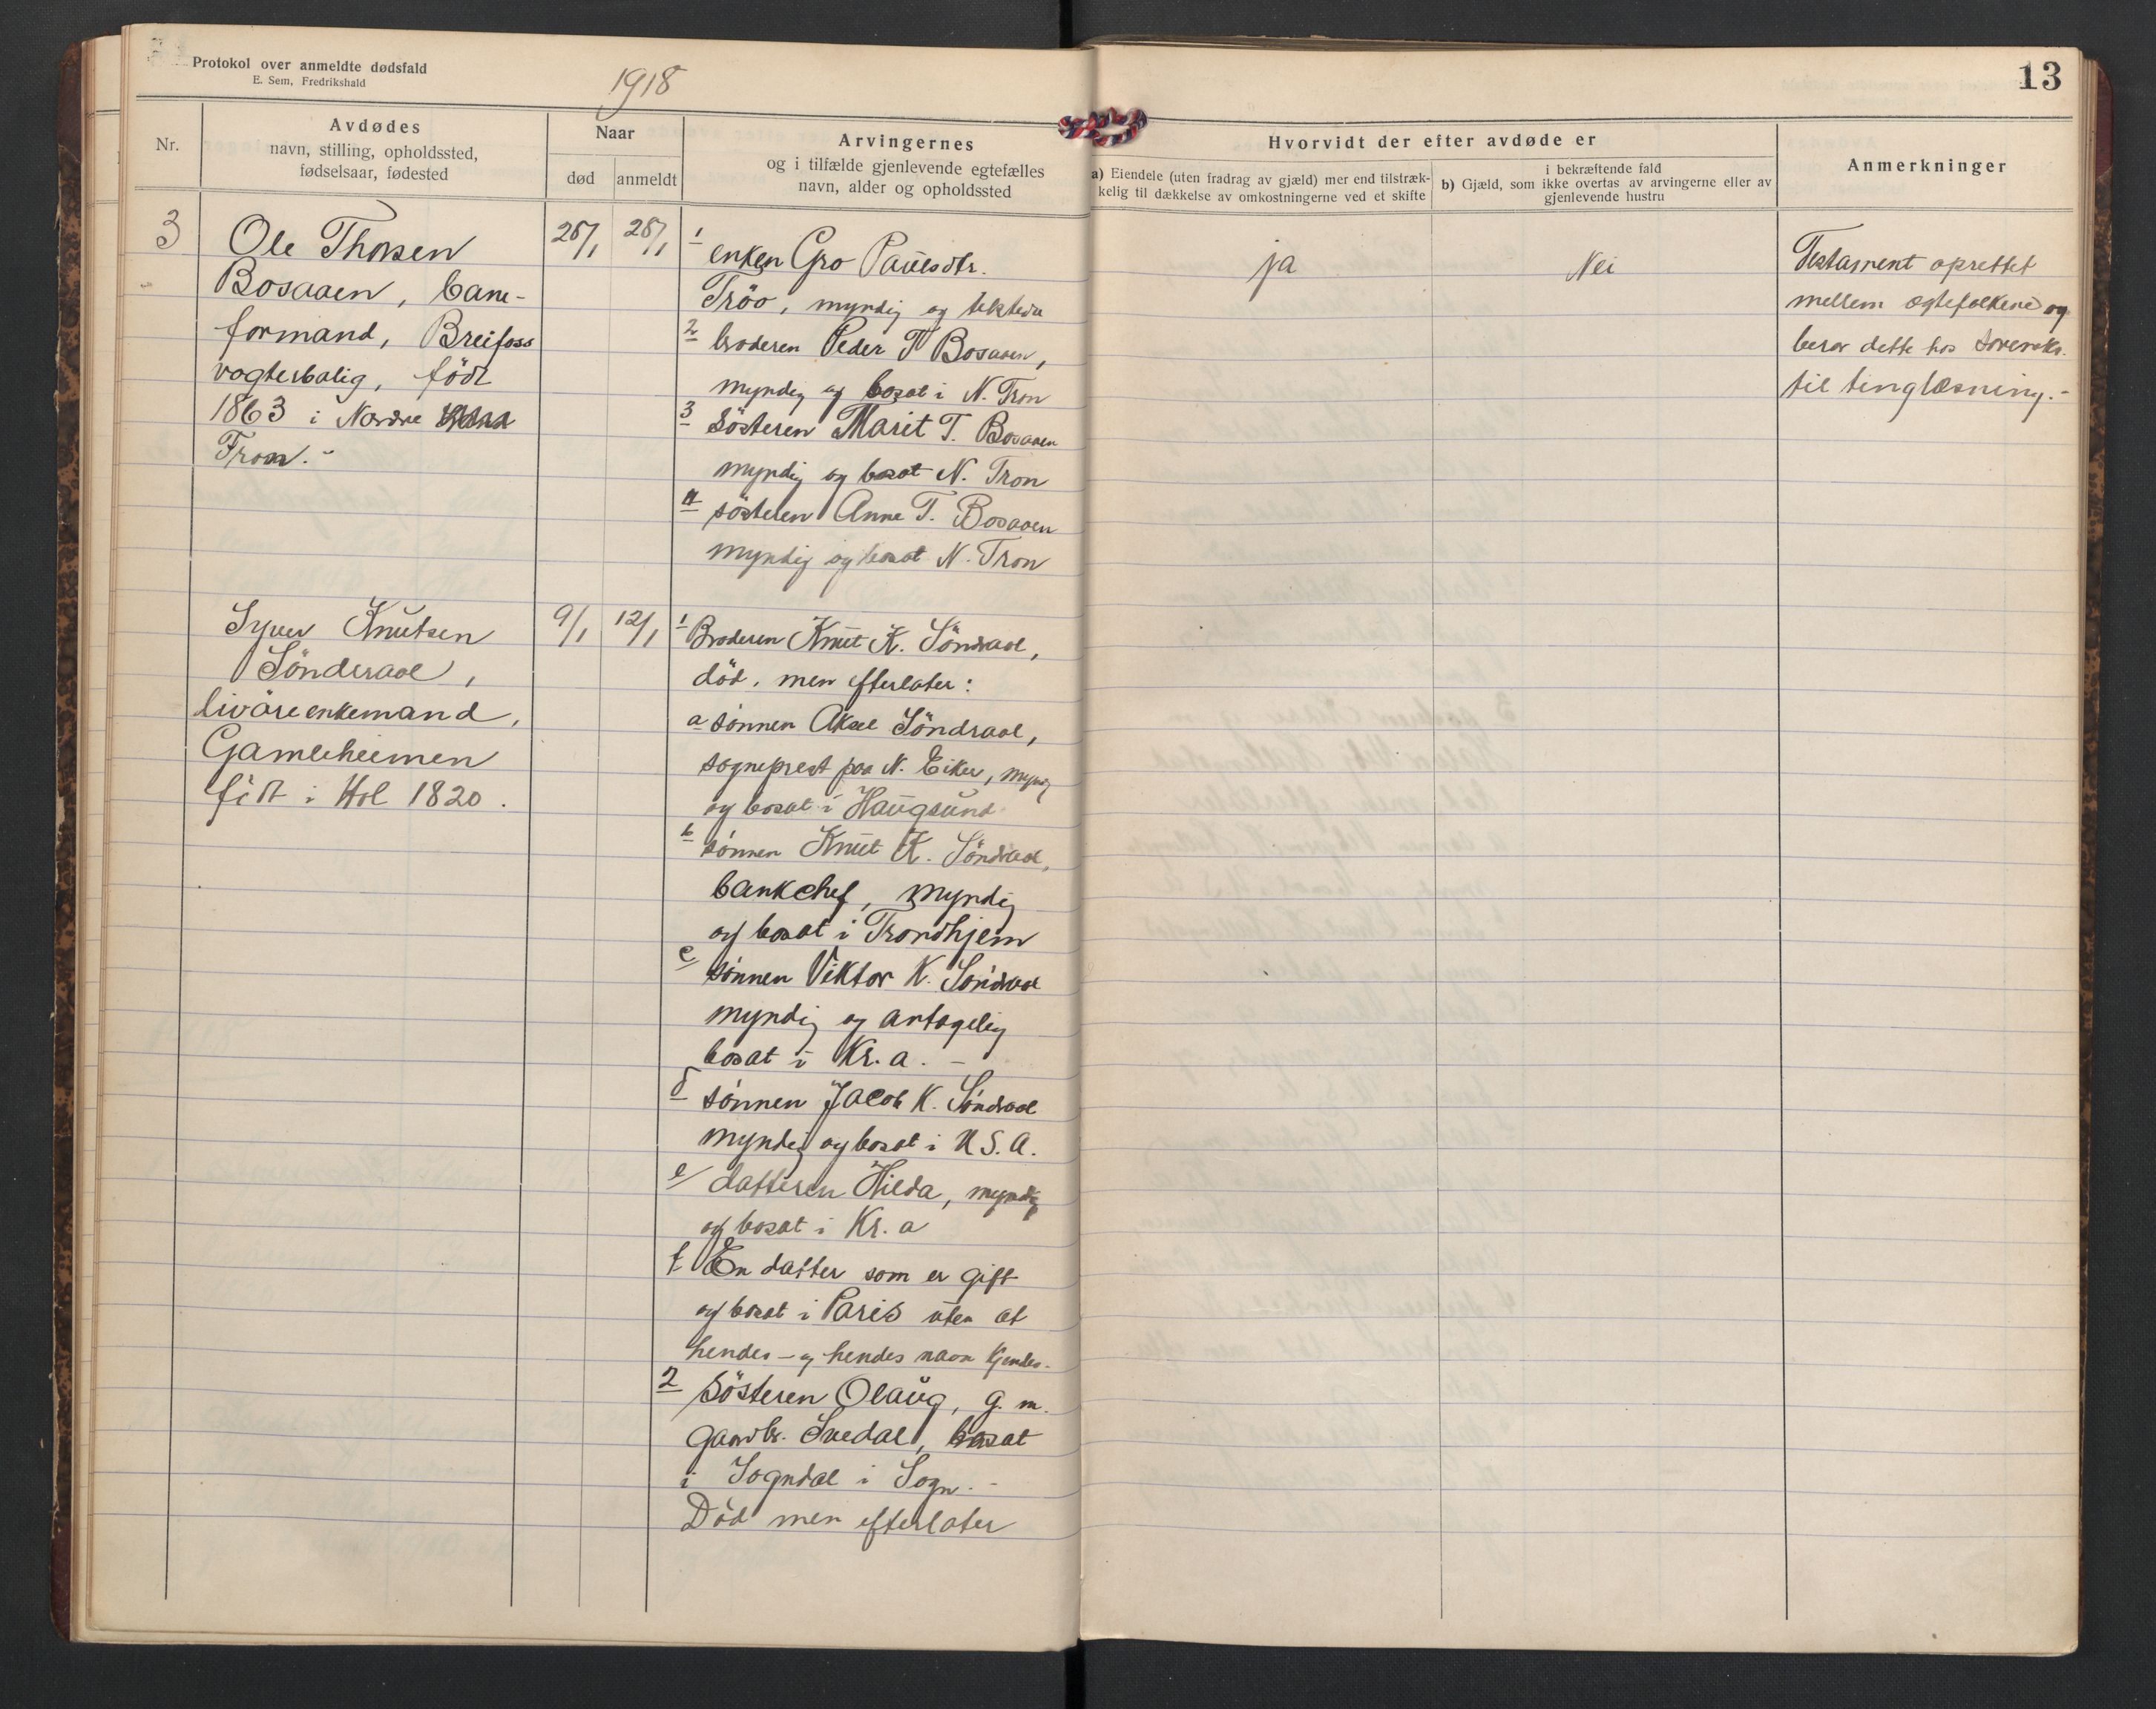 Protokol over anmeldte dødsfald
E. Sem, Fredrikshald
1918
13
Nr.
Avdødes
navn, stilling, opholdssted,
fødselsaar, fødested
Naar
død
anmeldt
Arvingernes
og i tilfælde gjenlevende egtefælles
navn, alder og opholdssted
Hvorvidt der efter avdøde er
a) Eiendele (uten fradrag av gjæld) mer end tilstræk-
kelig til dækkelse av omkostningerne ved et skifte
i bekræftende fald
b) Gjæld, som ikke overtas av arvingerne eller av
gjenlevende hustru
Anmerkninger
3
Ole Thorsen
Bosaaen, bane-
formand, Breifoss
vogterbolig, född
1863 i Nordre
Fron.-
25/1
28/1
1 enken Gro Paulsdtr.
Tröo, myndig og
2 broderen Peder T Bosaaen,
myndig og bosat i N. Fron
3 Södsteren Marit T. Bosaaen
myndig og bosat N. Fron
4 södsteren Anne T. Bosaaen
myndig og bosat N. Fron
ja
Nei
Testament oprettet
mellem ægtefolkene og
beror dette hos Sorenskr.
til tinglæsning.-
Syver Knutsen
Sönderaal,
livöreenkemand,
Gamleheimen
född i Hol 1820.
9/1
12/1
1 Broderen Knut K. Söndraal,
död, men efterlater:
a sönnen Aksel Söndraal,
sogneprest paa N. Eiker, myndig
og bosat i Haugsund
b sönnen Knut K. Söndraal,
bankchef, myndig
og bosat i Trondhjem
c sönnen Viktor K. Söndraal
myndig og antagelig
bosat i Kr.a. -
d sönnen Jacob K. Söndraal
myndig og bosat i U.S.A.
e/ datteren Hilda, myndig
og bosat i Kr.a
f En datter som er gift
og bosat i Paris uten at
hendes - og hendes navn kjendes.
2 Södsteren Olaug, g. m.
gaardbr. Svedal, bosat
i Sogndal i Sogn.-
Död men efterlater